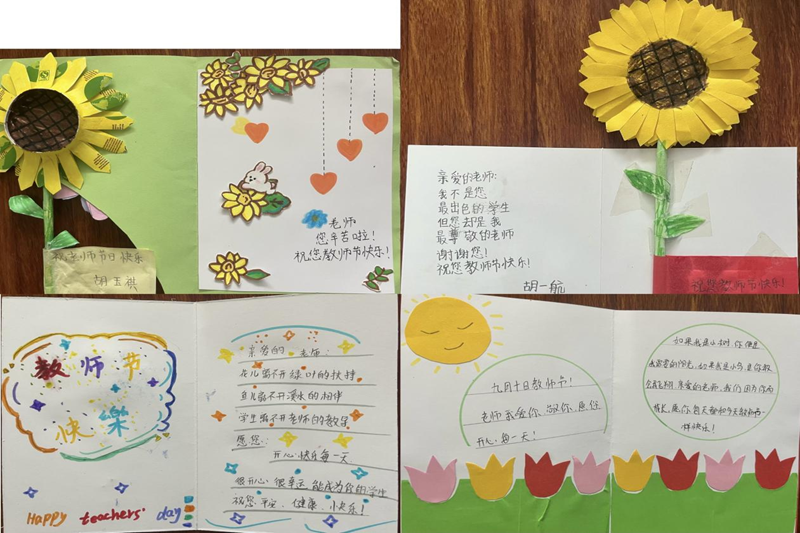 老师
您辛苦啦!
祝您教师节快乐!
祝老师节日快乐
胡玉祺
亲爱的老师:
我不是您
最出色的学生
但您却是我
最尊敬的老师
谢谢您!
祝您教师节快乐!
胡一航
祝您教师节快乐!
教师节
快樂
Happy teachers' day
亲爱的 老师:
花儿离不开绿叶的扶持
鱼儿离不开溪水的相伴
学生离不开老师的教导
愿您:
开心快乐每一天
很开心 很幸运 能成为你的学生
祝您平安、健康、小快乐!
九月十日教师节!
老师我爱你,敬你,愿您
开心每一天!
如果我是小树,你便是
的阳光,如果我是小鸟,是你教
会我飞翔,亲爱的老师,我们因为你而
成长,愿你每天都和今天教师节
一样快乐!